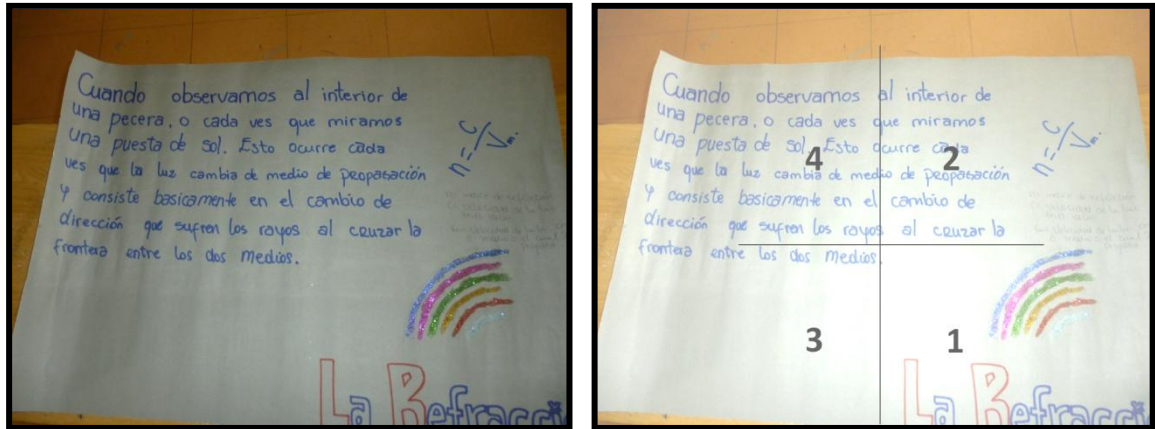 Cuando observamos al interior de
una pecera, o cada ves que miramos
una puesta de sol. Esto ocurre cada
ves que la luz cambia de medio de propagación
y consiste basicamente en el cambio de
dirección que sufren los rayos al cruzar la
frontera entre los dos medios.
n = c/Vmi
La Refracci
Cuando observamos al interior de
una pecera, o cada ves que miramos
una puesta de sol. Esto ocurre cada
ves que la luz cambia de medio de propagación
y consiste basicamente en el cambio de
dirección que sufren los rayos al cruzar la
frontera entre los dos medios.
n = c/Vmi
4 2
3 1
La Refracci